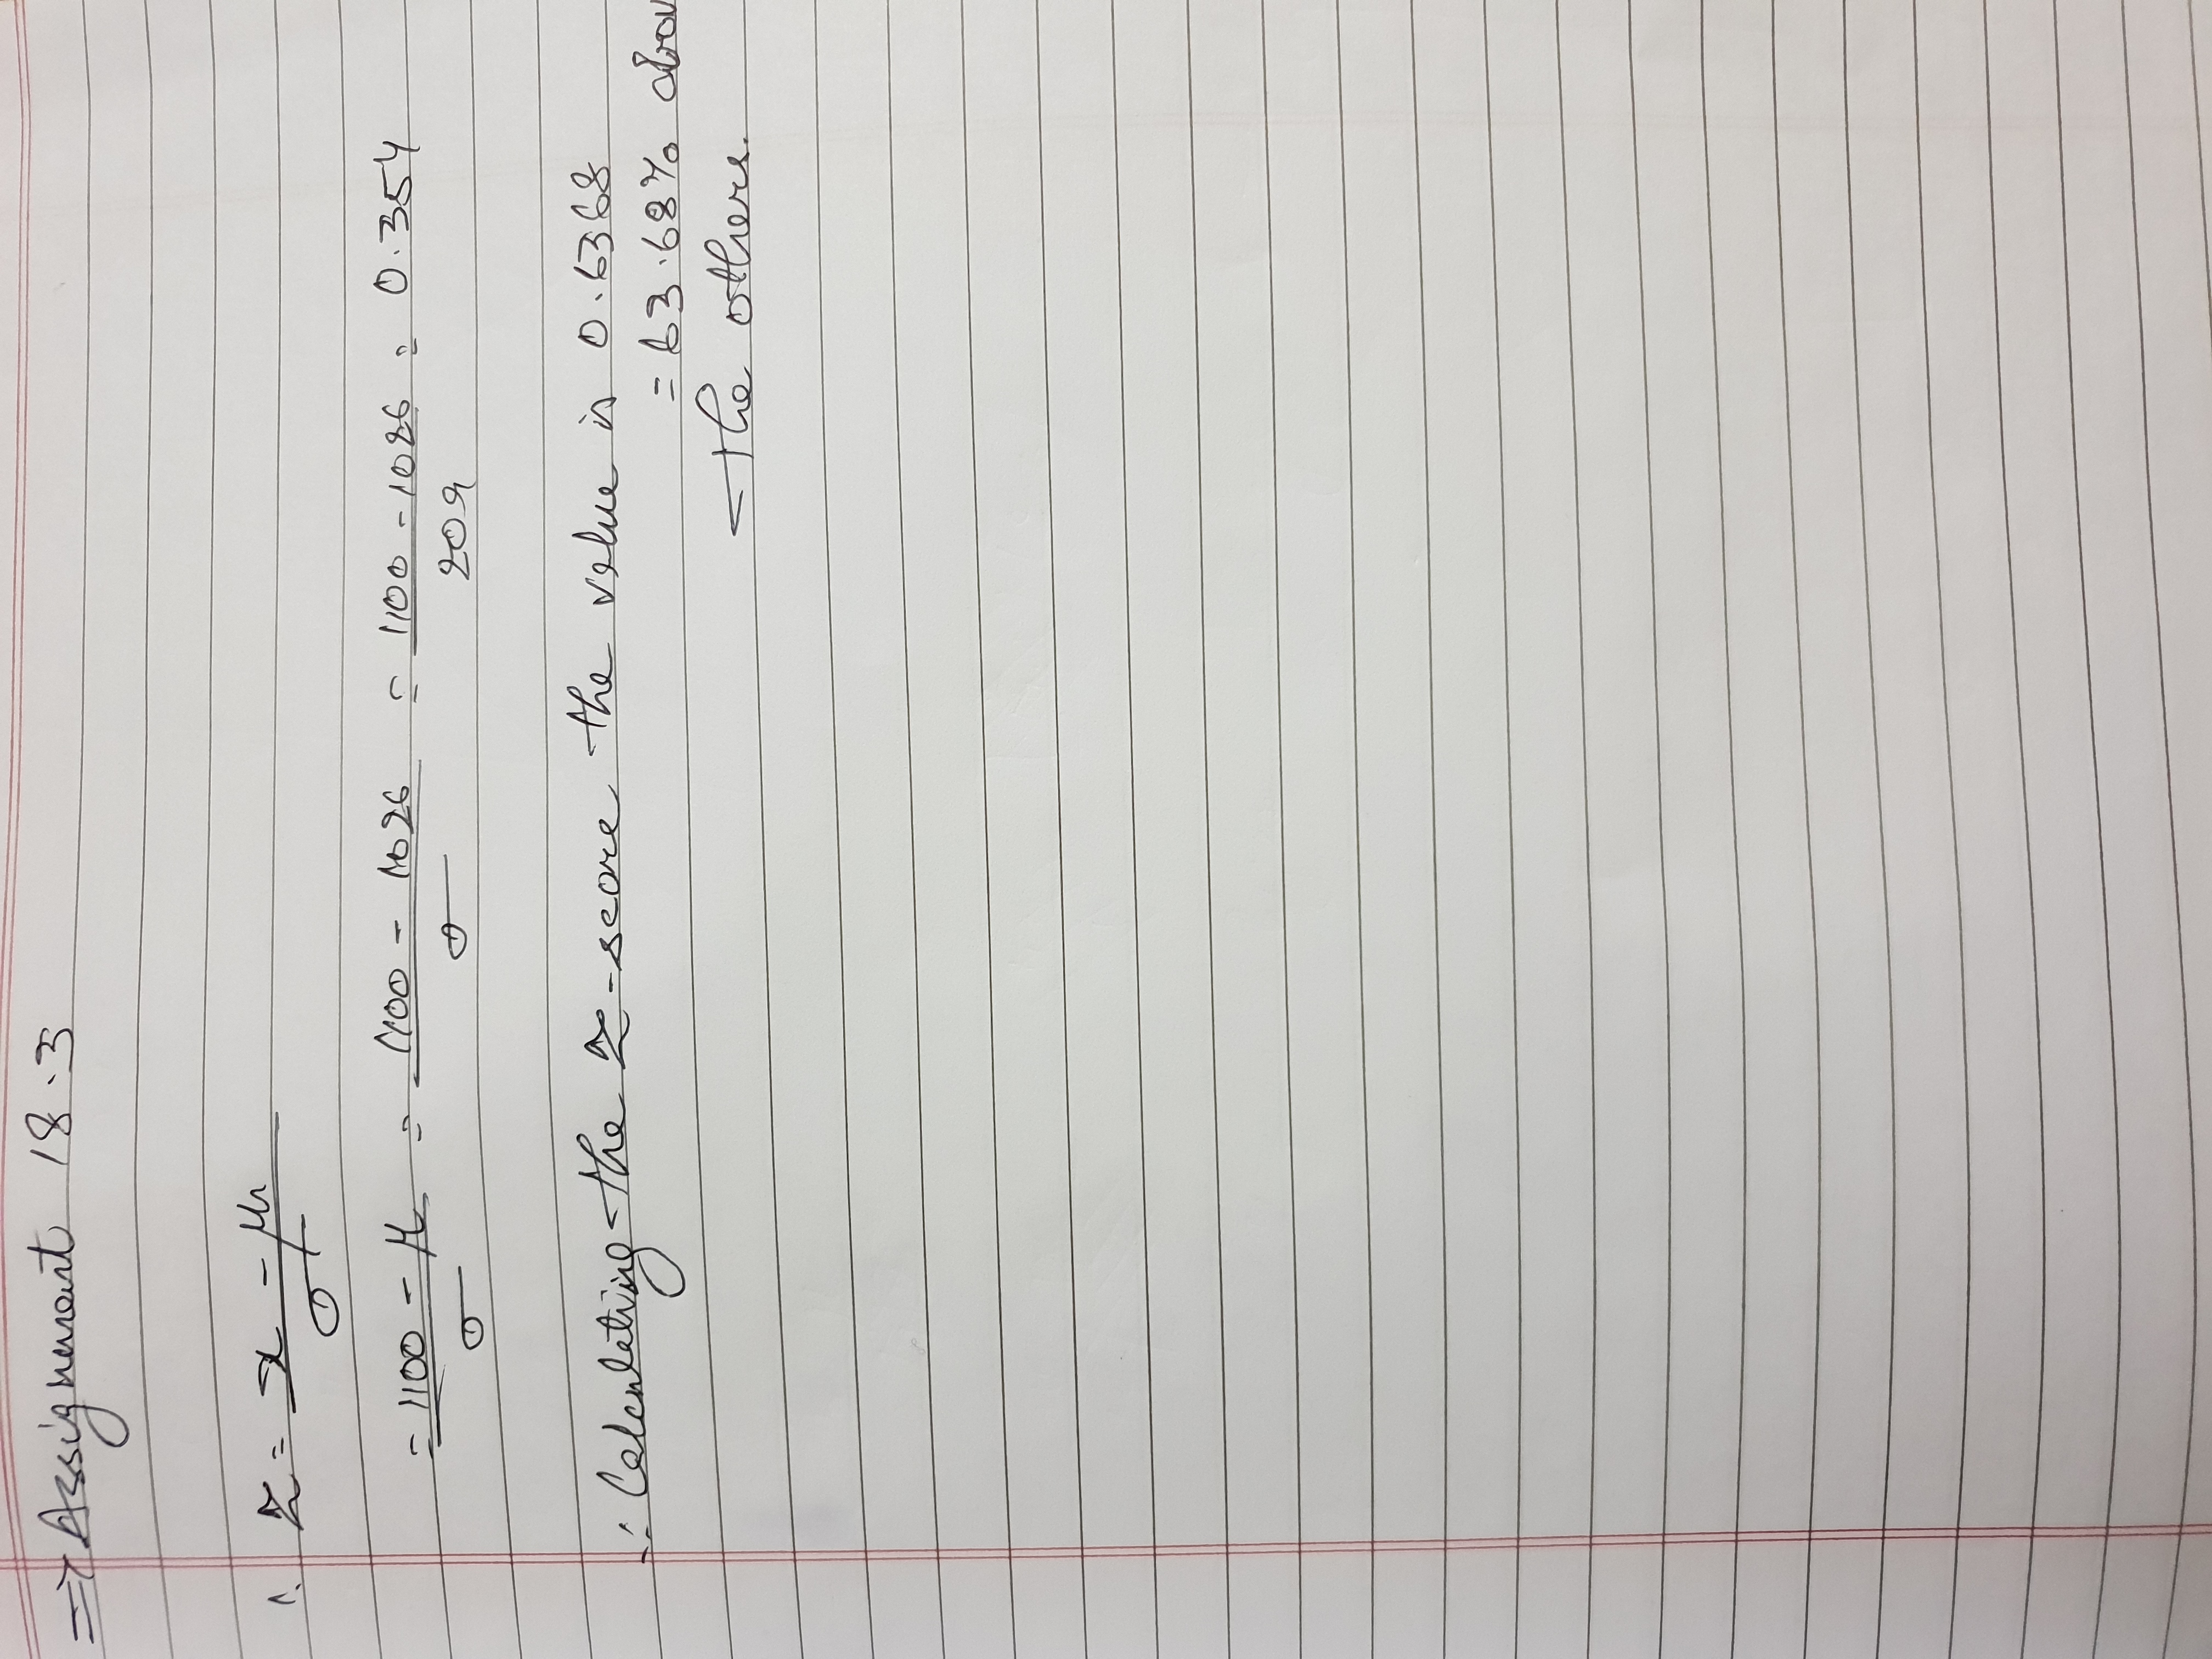 => Assignment 18.3
1. z = x - μ / σ
= 1100 - μ / σ = 1100 - 1026 / σ = 1100 - 1026 / 209 = 0.354
∴ Calculating the z-score the value is 0.6368
= 63.68% abov
the others.